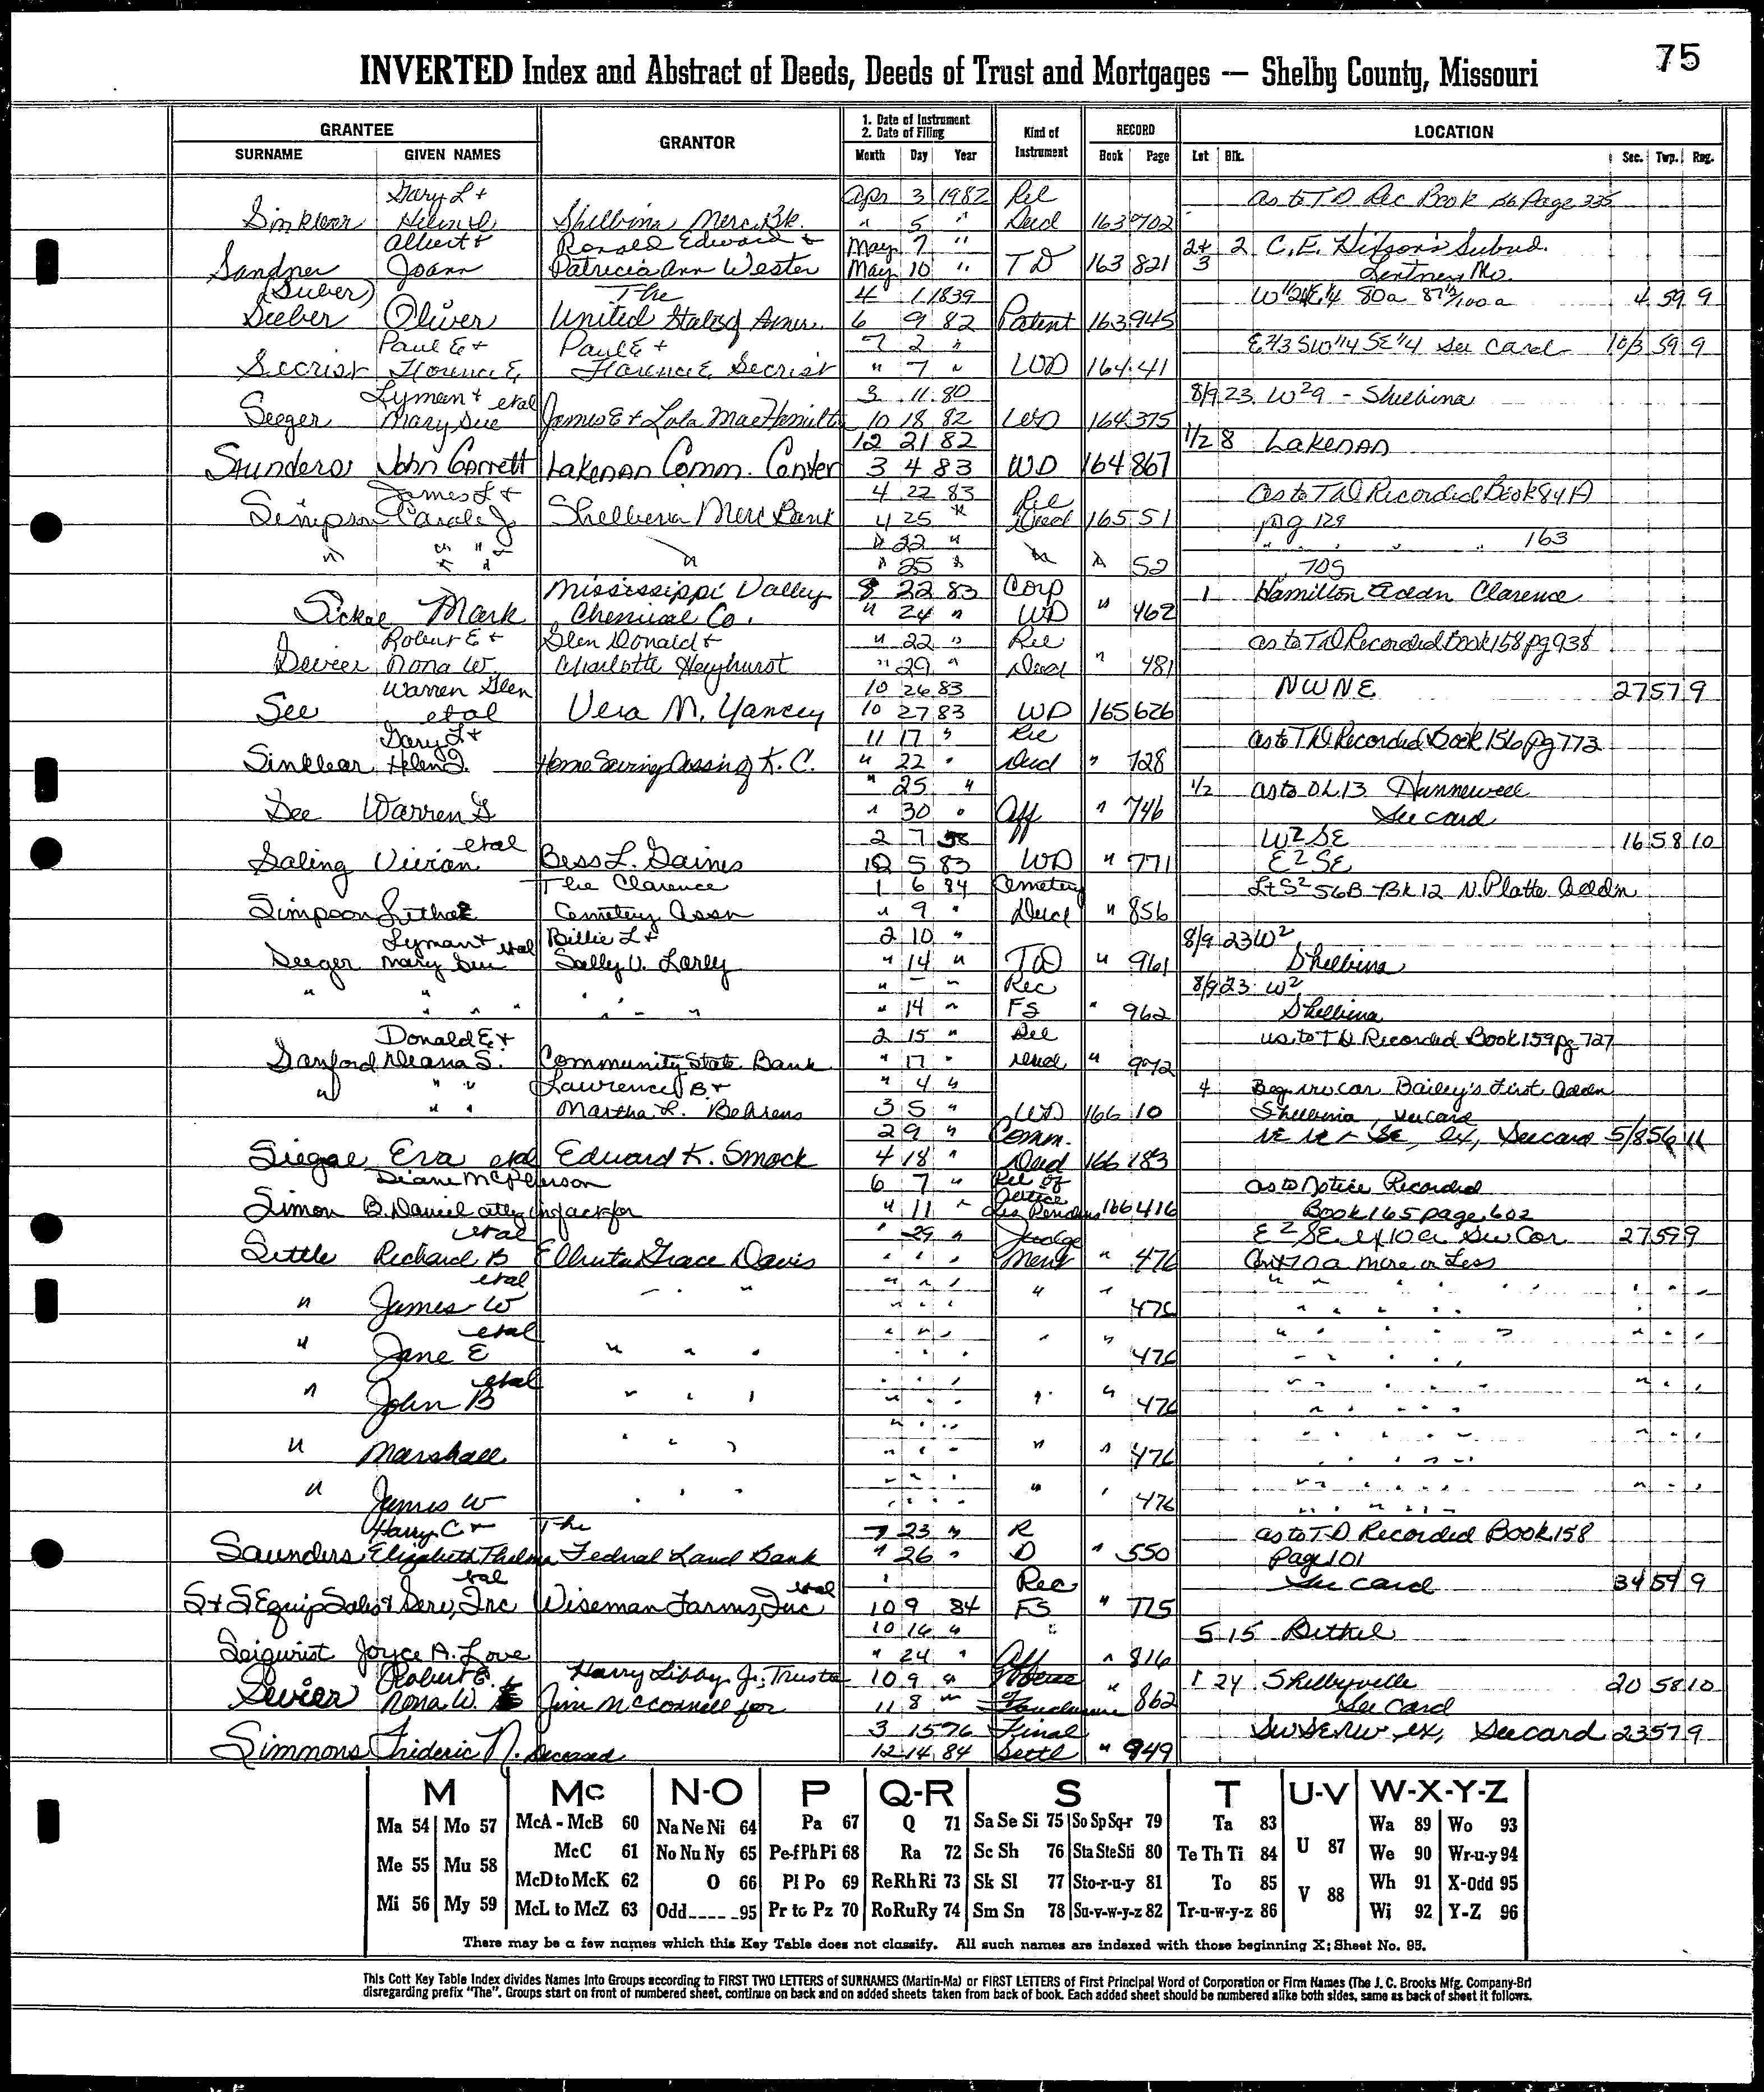 75
INVERTED Index and Abstract of Deeds, Deeds of Trust and Mortgages — Shelby County, Missouri
GRANTEE GRANTOR 1. Date of Instrument 2. Date of Filing Kind of Instrument RECORD LOCATION
SURNAME GIVEN NAMES Month Day Year Book Page Lot Blk. Sec. Twp. Rng.
Gary L + Apr 3 1982 Rel as to T D Rec Book 156 Page 335
Sinklear Helen D. Shelbina Merc. Bk. " 5 " Deed 163 702
Albert + Ronald Edward + May 7 " 2+ 2 C.E. Subud.
Sandner Joann Patricia Ann Wester May 10 " T D 163 821 3 Lentner, Mo.
(Suber) The 4 1 1839 80a 4 59 9
Seeber Oliver United States of Amer. 6 9 82 Patent 163 945
Paul E + Paul E + 7 2 " E 2/3 SW 1/4 SE 1/4 See Card 10/3 59 9
Secrist Florence E. Florence E. Secrist " 7 " WD 164 41
Lyman + etal 3 11 80 8/9 23 W29 - Shelbina
Seeger Mary Sue James E + Lola Mae Hamilton 10 18 82 WD 164 375
12 21 82 1/2 8 Lakenan
Saunders John Garrett Lakenan Comm. Center 3 4 83 WD 164 867
James L + 4 22 83 Rel as to T D Recorded Book 84A
Simpson Carole J. Shelbina Merc Bank 4 25 " Deed 165 51 pg 129
" 22 " " 163
" " " " " 25 " " " 52 709
Mississippi Valley 8 22 83 Corp 1 Hamilton Addn Clarence
Sickal Mark Chemical Co. " 24 " WD " 462
Robert E + Glen Donald + " 22 " Rel as to T D Recorded Book 158 pg 938
Sevier Nona W. Charlotte Heyhurst " 29 " Deed " 481
Warren Glen 10 26 83 NWNE 27 57 9
See etal Vera M. Yancey 10 27 83 WD 165 626
Gary L + 11 17 " Rel as to T D Recorded Book 156 pg 773
Sinklear Helen D. Home Saving Assn of K.C. " 22 " Deed " 728
" 25 " 1/2 as to OL13 Hunnewell
See Warren G " 30 " Aff " 746 See card
etal 2 7 58 W2 SE 16 58 10
Saling Vivian Bess L. Gaines 12 5 83 WD " 771 E2 SE
The Clarence 1 6 84 Cemetery Lt S2 56B - Bk 12 N. Platte Addn
Simpson Letha E Cemetery Assn " 9 " Deed " 856
Lyman + etal Billie L + 2 10 " 8/9 23 W2
Seeger Mary Sue Sally V. Larly " 14 " TD " 961 Shelbina
" " " - " Rec 8/9 23 W2
" " " " " " 14 " FS " 962 Shelbina
Donald E + 2 15 " Rel as to T D Recorded Book 159 pg 727
Sanford Deana S. Community State Bank " 17 " Deed " 972
" " " Lawrence B + " 4 " 4 Beg Bailey's First Addn
" " Martha L. Behrens 3 5 " WD 166 10 Shelbina, see card
2 9 " Comm. See card 5/8 56 11
Siegal Eva etal Edward K. Smock 4 18 " Deed 166 183
Diane McPherson 6 7 " Rel of as to Notice Recorded
Simon B. Daniel atty in fact for " 11 " Notice Lis Pendens 166 416 Book 165 page 602
etal " 29 " Judge E2 SE ex 10a Sw Cor 27 59 9
Settle Richard B Elhuta Grace Davis " " " Ment " 476 Cont 70a more or Less
etal " " " " " " "
" James W " " " " " 476 " " " "
etal " " " " " " "
" Jane E " " " " " 476 " " " "
etal " " " " " " "
" John B " " " " " 476 " " " "
" " " " " " "
" Marshall " " " " " 476 " " " "
" " " " " " "
" James W " " " " " 476 " " " "
Harry C + The 7 23 " R as to T.D Recorded Book 158
Saunders Elizabeth Thelma Federal Land Bank " 26 " D " 550 Page 101
etal etal " Rec See card 34 59 9
S+S Equip Sales + Serv, Inc Wiseman Farms, Inc 10 9 84 FS " 775
10 16 " 5 15 Bethel
Seigurist Joyce A. Love " 24 " Aff " 816
Robert E. + Harry Libby Jr., Trustee 10 9 " Notice 1 24 Shelbyville 20 58 10
Sevier Nona W. Jim McConnell for 11 8 " Foreclosure " 862 See Card
3 15 76 Final SW SE NW ex, See card 23 57 9
Simmons Frideric N. Deceased 12 14 84 Settl " 949
M Mc N-O P Q-R S T U-V W-X-Y-Z
Ma 54 Mo 57 McA - McB 60 Na Ne Ni 64 Pa 67 Q 71 Sa Se Si 75 So Sp Sq-r 79 Ta 83 Wa 89 Wo 93
McC 61 No Nu Ny 65 Pe-f Ph Pi 68 Ra 72 Sc Sh 76 Sta Ste Sti 80 Te Th Ti 84 U 87 We 90 Wr-u-y 94
Me 55 Mu 58 McD to McK 62 O 66 Pl Po 69 Re Rh Ri 73 Sk Sl 77 Sto-r-u-y 81 To 85 Wh 91 X-Odd 95
Mi 56 My 59 McL to McZ 63 Odd 95 Pr to Pz 70 Ro Ru Ry 74 Sm Sn 78 Su-v-w-y-z 82 Tr-u-w-y-z 86 V 88 Wi 92 Y-Z 96
There may be a few names which this Key Table does not classify. All such names are indexed with those beginning X; Sheet No. 95.
This Cott Key Table Index divides Names Into Groups according to FIRST TWO LETTERS of SURNAMES (Martin-Ma) or FIRST LETTERS of First Principal Word of Corporation or Firm Names (The J. C. Brooks Mfg. Company-Br)
disregarding prefix "The". Groups start on front of numbered sheet, continue on back and on added sheets taken from back of book. Each added sheet should be numbered alike both sides, same as back of sheet it follows.